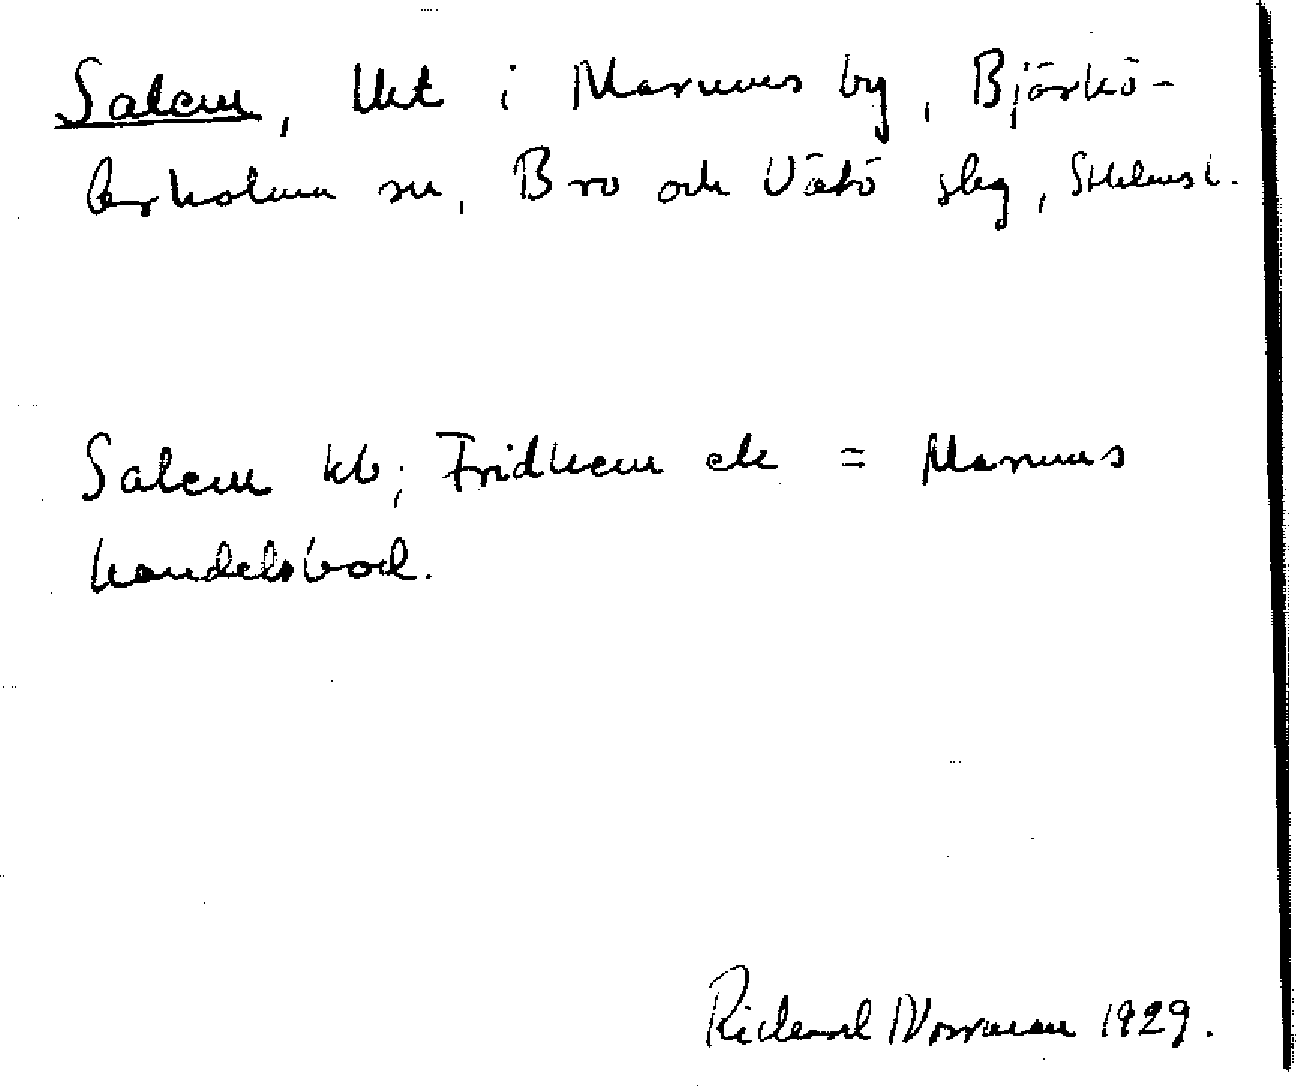 Salem, lht i Marums by, Björkö-
Arholma sn, Bro och Vätö slg, Sthlms l.
Salem kb; Fridhem ek = Marums
handelsbod.
Richard Norrman 1929.